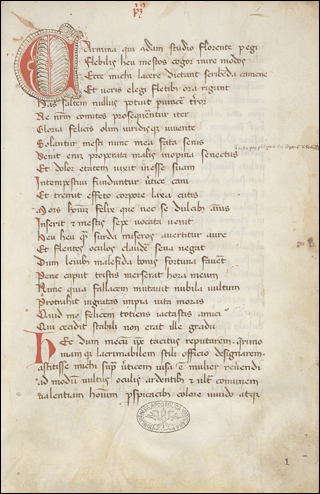 Carmina qui qdam studio florente pegi
Flebilis heu mestos cogor inire modos
Ecce michi lacere dictant scribēda camene
Et veris elegi fletibꝰ ora rigant
Has saltem nullus potuit puincē t'ror
Ne nr̄m comites prosequerent̄ iter
Gloria felicis olim viridisqꝫ iuuente
Solantur mesti nunc mea fata senis
Venit enī properata malis inopina senectus
Et dolor etatem iussit inesse suam
Intempestiui funduntur v'tice cani
Et tremit effeto corpore laxa cutis
Mors hoīm felix que nec se dulcibꝰ ānis
Inserit et mestis sepe vocata venit
Heu heu qͣ surda miseros auertitur aure
Et flentes oculos claudē seua negat
Dum leuibꝰ malefida bonis fortuna fauēt
Pene caput tristis merserat hora meum
Nunc quia fallacem mutauit nubila vultum
Protrahit ingratas impia vita moras
Quid me felicem totiens iactastis amici
Qui cecidit stabili non erat ille gradu
Hec dum mecū ip̄e tacitus reputarem. q̄rimo
niam qꝫ lacrimabilem stili officio designarem.
astitisse michi sup̄ v'ticem visa ē mulier reu'endi
ad modū vultus oculis ardentibꝰ et vlt̄ comunem
valentiam hoīum p̄spicacibꝰ colore viuido atqꝫ
1